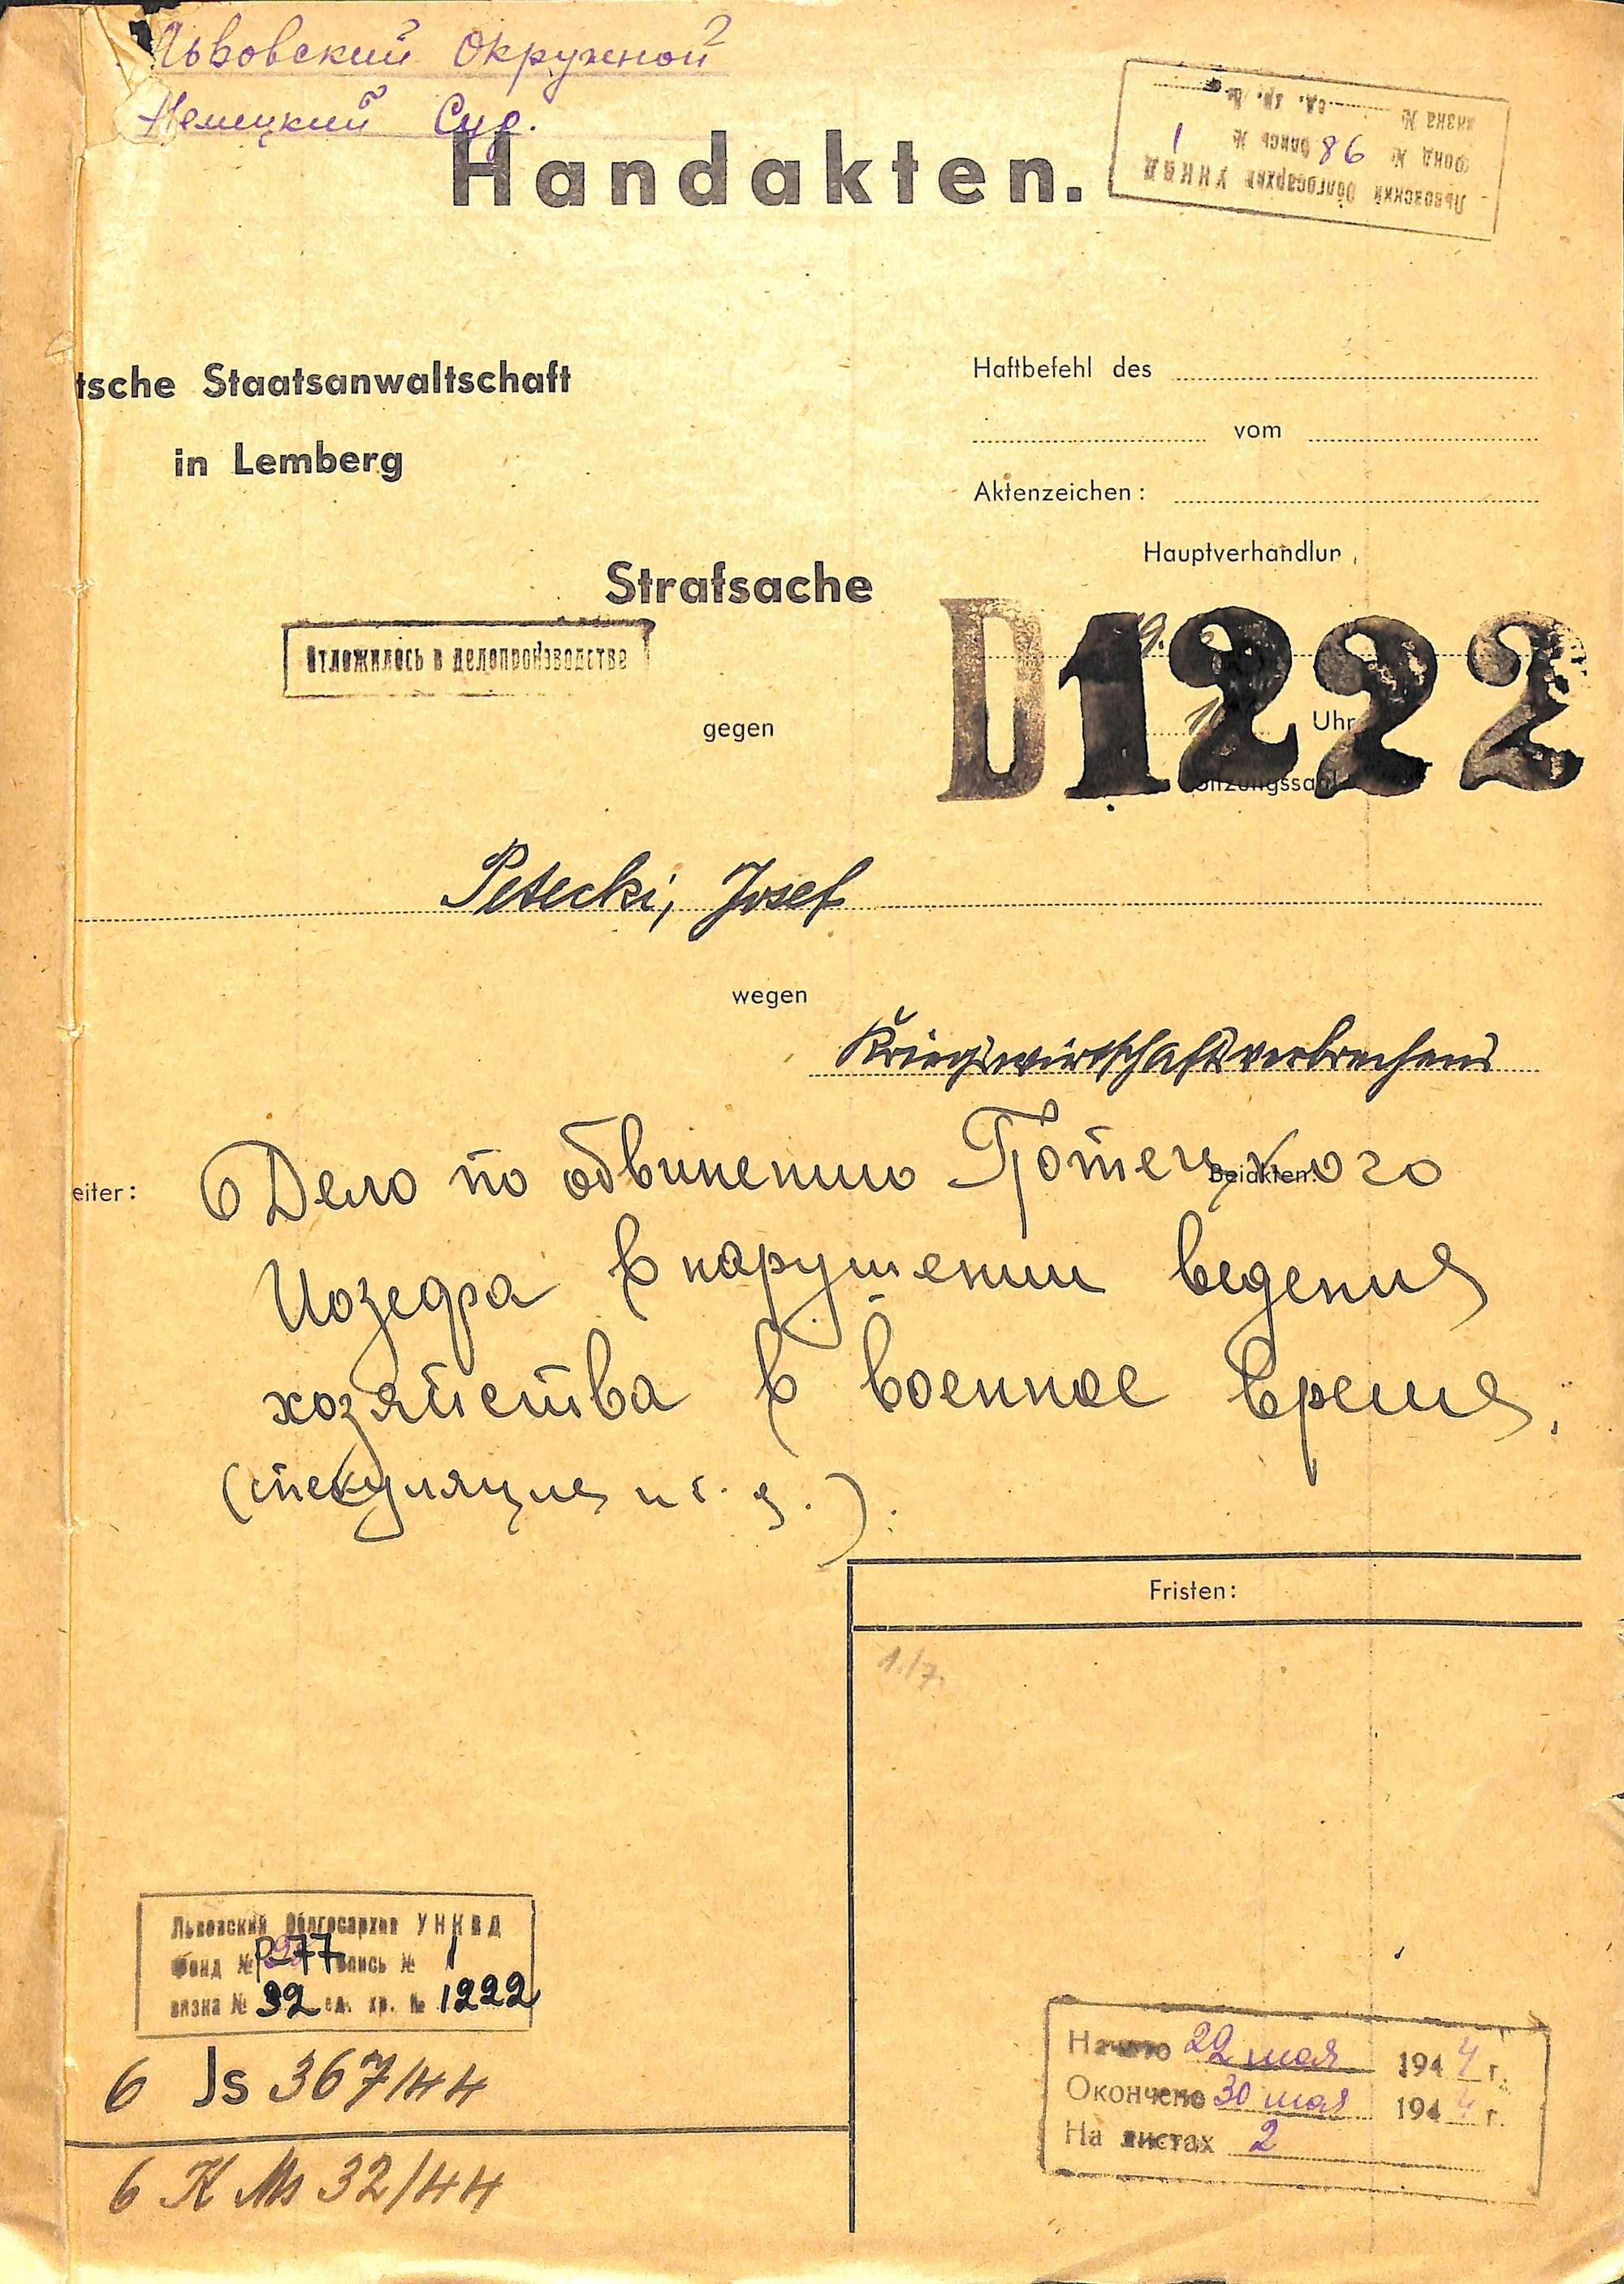 Львовский Окружной
Немецкий Суд.
Handakten.
Львовский Облгосархив УНКВД
Фонд № 86 опись № 1
вязка № ед. хр. №
tsche Staatsanwaltschaft
in Lemberg
Haftbefehl des
vom
Aktenzeichen:
Hauptverhandlun
Strafsache
Отложилось в делопроизводстве
D1222
gegen
Uhr
Sitzungssaal
Petecki, Josef
wegen
Kriegswirtschaftsverbrechens
eiter:
Beiakten:
Дело по обвинению Потецкого
Иозефа в нарушении ведения
хозяйства в военное время
(спекуляция и т. д.).
Fristen:
1./7.
Львовский Облгосархив УНКВД
Фонд № Р-77 опись № 1
вязка № 32 ед. хр. № 1222
6 Js 367/44
6 K Ms 32/44
Начато 22 мая 1944 г.
Окончено 30 мая 1944 г.
На листах 2